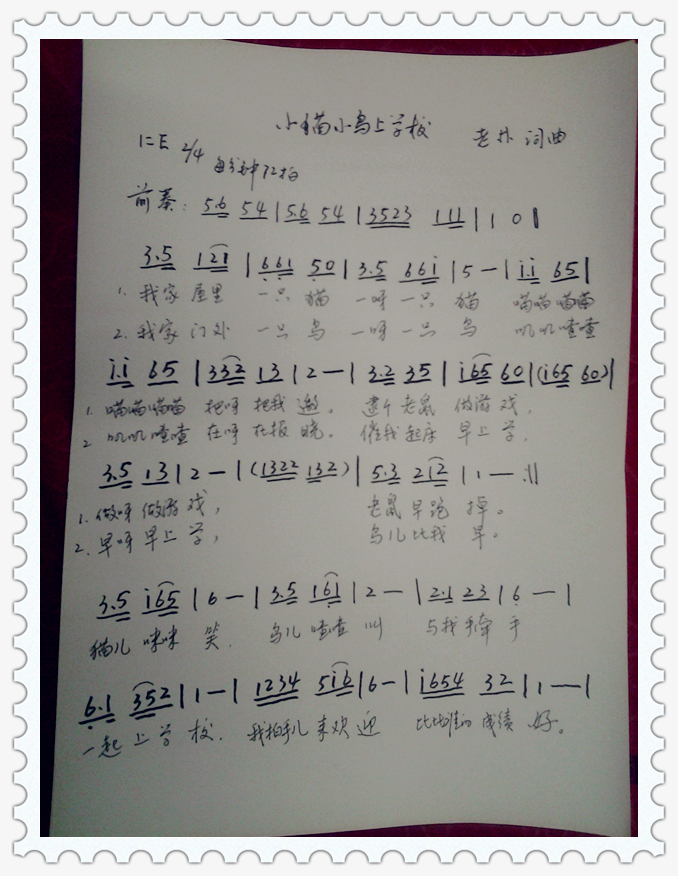 小猫小鸟上学校 老孙 词曲
1=E 2/4 每分钟72拍
前奏: 5.6 54 | 5.6 54 | 3523 111 | 1 0 ‖
3.5 121 | 661 50 | 3.5 661 | 5 — | i.i 65 |
1. 我家屋里 一只 猫 一呀一只 猫 喵喵喵喵
2. 我家门外 一只 鸟 一呀一只 鸟 叽叽喳喳
i.i 65 | 332 13 | 2 — | 3.2 35 | i65 60 | (i65 60) |
1. 喵喵喵喵 把呀把我 邀。 逮个老鼠 做游戏,
2. 叽叽喳喳 在呀在报 晓。 催我起床 早上学,
3.5 13 | 2 — | (1322 132) | 5.3 212 | 1 — :‖
1. 做呀做游戏, 老鼠早跑 掉。
2. 早呀早上 学, 鸟儿比我 早。
3.5 i65 | 6 — | 3.5 161 | 2 — | 2.1 23 | 6 — |
猫儿 咪咪 笑. 鸟儿喳喳 叫 与我手牵 手
6.1 352 | 1 — | 1234 5i6 | 6 — | i654 32 | 1 — |
一起上学 校. 我拍手儿来欢 迎 比比谁的成绩 好。